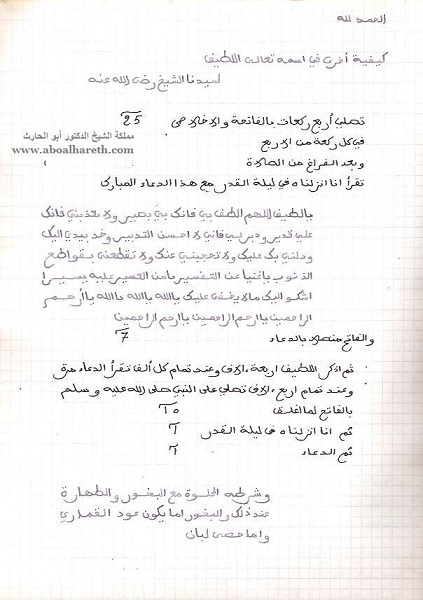 الحمد لله
كيفية أخرى في اسمه تعالى اللطيف
لسيدنا الشيخ رضي الله عنه
تصلي أربع ركعات بالفاتحة والاخلاص 25
في كل ركعة من الاربع
مملكة الشيخ الدكتور أبو الحارث
www.aboalhareth.com
وبعد الفراغ من الصلاة
تقرأ انا انزلناه في ليلة القدر مع هذا الدعاء المبارك
يالطيف اللهم الطف بي فانك بي بصير ولا تعذبني فانك
علي قدير ودبر لي فاني لا احسن التدبير وخذ بيدي اليك
ودلني بك عليك ولا تحجبني عنك ولا تقطعني بقواطع
الذنوب ياغنيا عن التفسير يامن العسير عليه يسير
اشكو اليك ما لا يخفى عليك يالله يالله يالله يالله ياارحم
الراحمين ياارحم الراحمين ياارحم الراحمين
والفاتح متصلا بالدعاء 7
ثم اذكر اللطيف اربعة ءالاف وعند تمام كل ألف تقرأ الدعاء مرة
وعند تمام اربع ءالاف تصلي على النبي صلى الله عليه وسلم
بالفاتح لما اغلق
ثم انا انزلناه في ليلة القدر
ثم الدعاء
وشرطه الخلوة مع البخور والطهارة
عند ذلك والبخور اما يكون عود القماري
واما حصى لبان